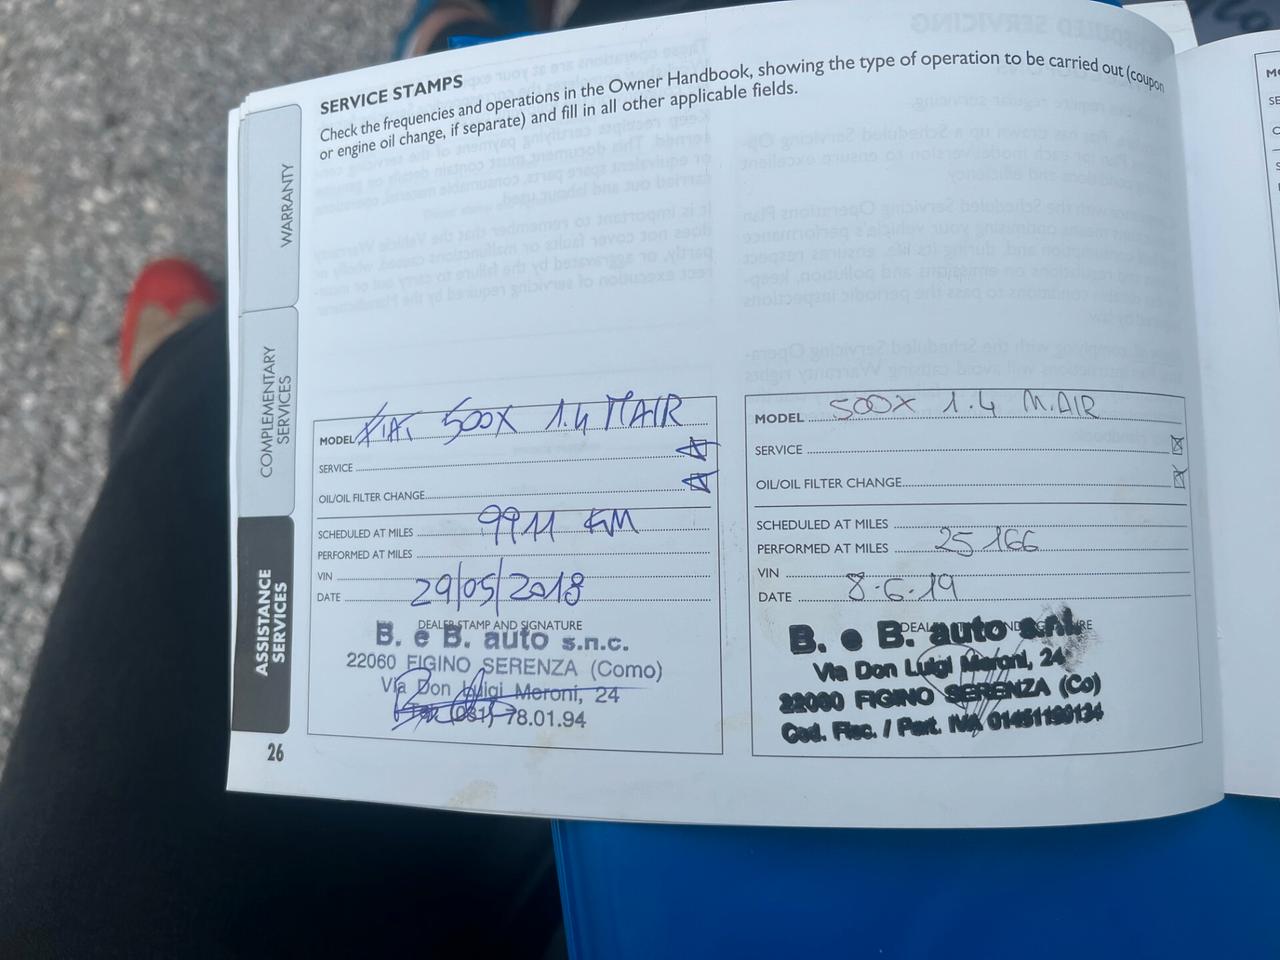 SERVICE STAMPS
Check the frequencies and operations in the Owner Handbook, showing the type of operation to be carried out (coupon
or engine oil change, if separate) and fill in all other applicable fields.
WARRANTY
COMPLEMENTARY
SERVICES
ASSISTANCE
SERVICES
26
MODEL FIAT 500X 1.4 MAIR
SERVICE
OIL/OIL FILTER CHANGE
SCHEDULED AT MILES 9911 KM
PERFORMED AT MILES
VIN
DATE 29/05/2018
DEALER STAMP AND SIGNATURE
B. e B. auto s.n.c.
22060 FIGINO SERENZA (Como)
Via Don Luigi Meroni, 24
Tel. (031) 78.01.94
MODEL 500X 1.4 M.AIR
SERVICE
OIL/OIL FILTER CHANGE
SCHEDULED AT MILES
PERFORMED AT MILES 25166
VIN
DATE 8.6.19
B. e B. auto s.r.l.
Via Don Luigi Meroni, 24
22060 FIGINO SERENZA (Co)
Cod. Fisc. / Part. IVA 01451190134